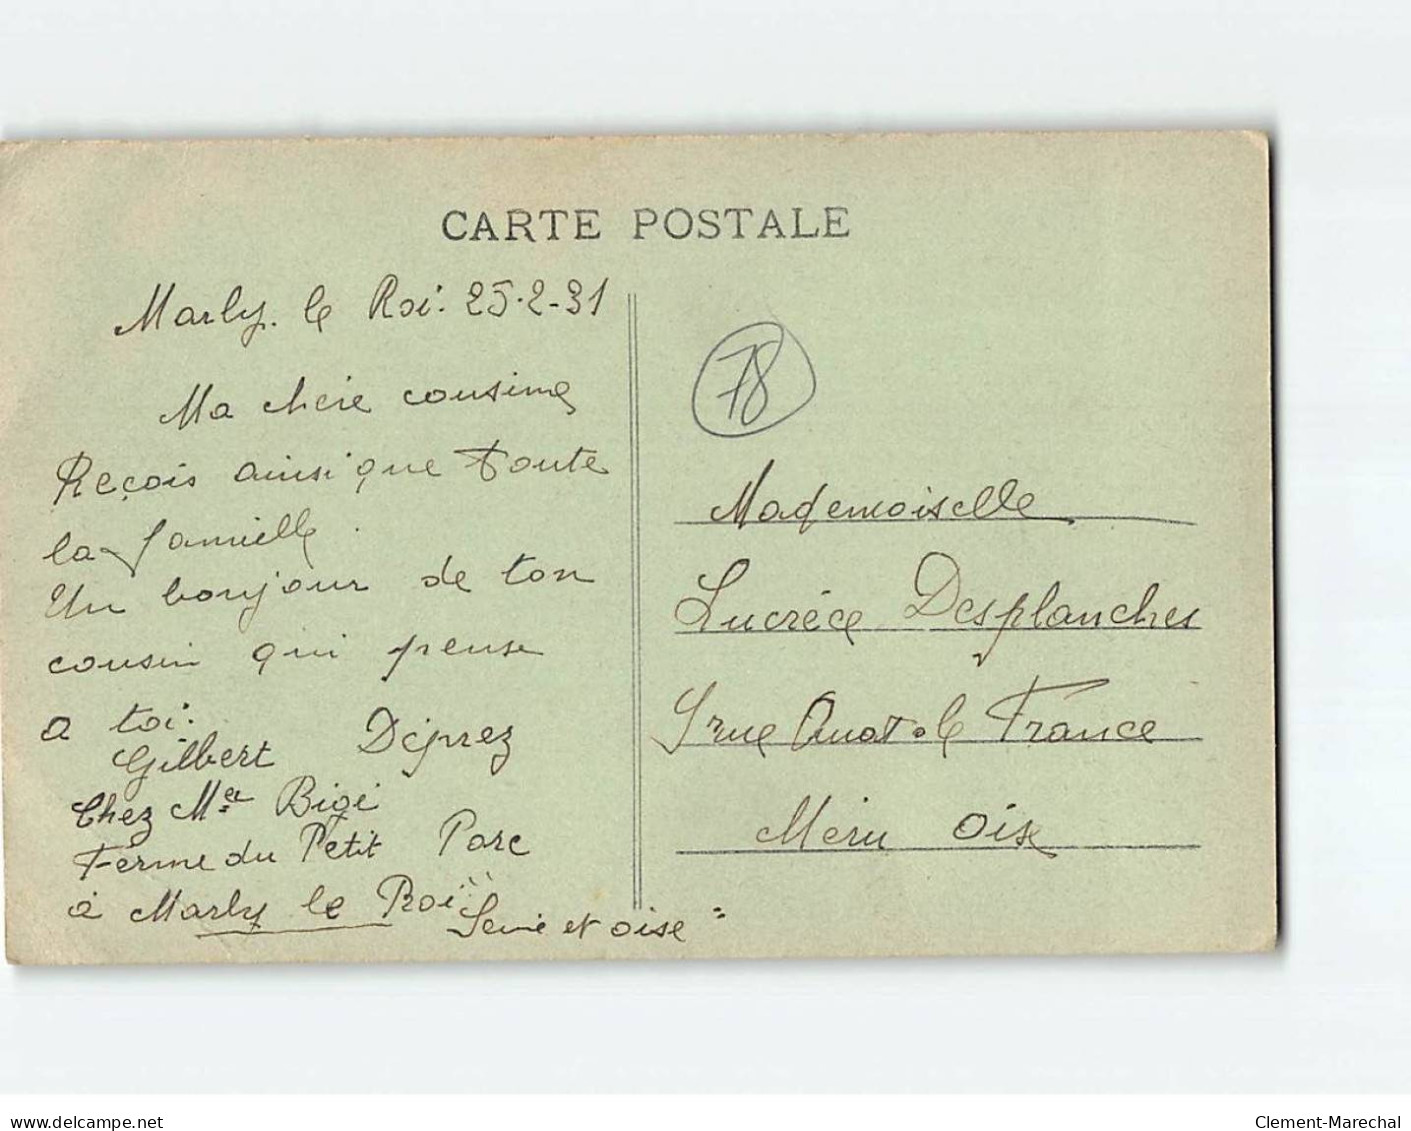 CARTE POSTALE
Marly. le Roi. 25-2-31
Ma chère cousine
Reçois ainsi que toute
la famille
Un bonjour de ton
cousin qui pense
a toi.
Gilbert Déprez
Chez Mer Bigé
Ferme du Petit Parc
à Marly le Roi "Seine et oise"
78
Mademoiselle
Lucrèce Desplanches
rue Anatole France
Méru Oise
delcampe.net
Clement-Marechal